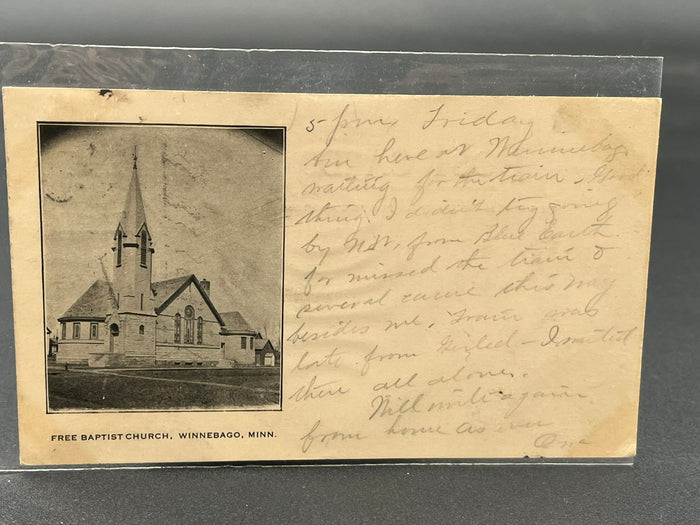 FREE BAPTIST CHURCH, WINNEBAGO, MINN.
5 pm, Friday
here at Winnebago
waiting for the train, Good
thing I didn't try going
by from Blue Earth
for missed the train &
several came this way
besides me, Train was
late from - I waited
there all alone.
Will write again
from home as ever